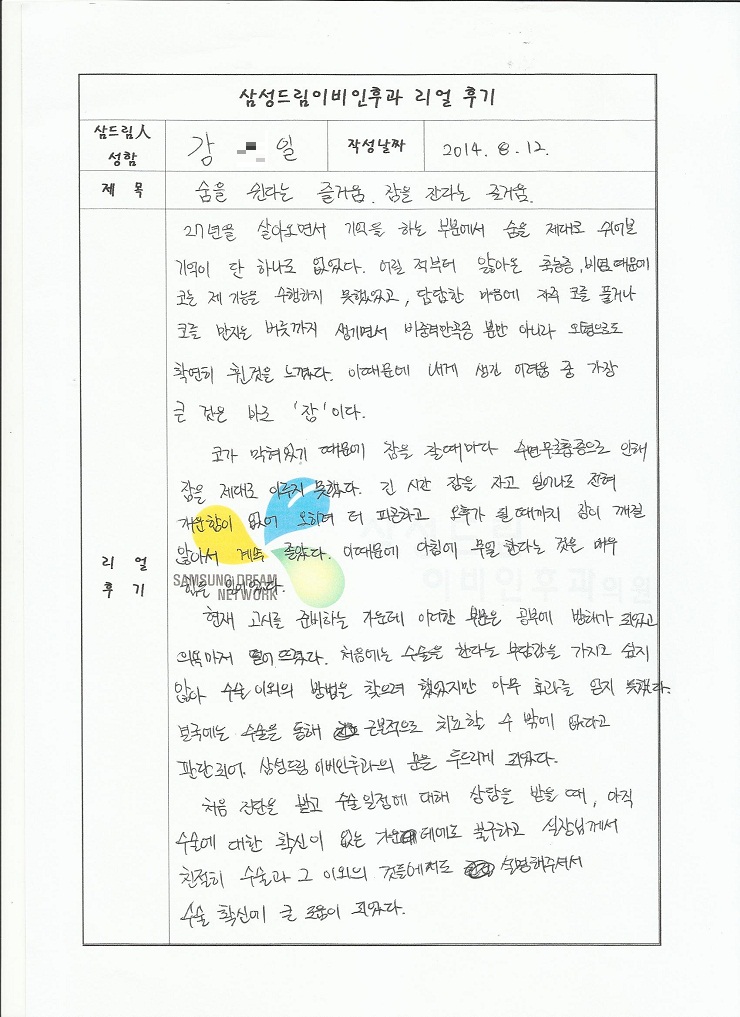 삼성드림이비인후과 리얼 후기
삼드림人 성함
감 일
작성날짜
2014. 8. 12.
제 목
숨을 쉰다는 즐거움. 잠을 잔다는 즐거움.
리 얼
후 기
27년을 살아오면서 기억을 하는 부분에서 숨을 제대로 쉬어본
기억이 단 하나도 없었다. 어릴 적부터 앓아온 축농증, 비염 때문에
코는 제 기능을 수행하지 못했었고, 답답한 마음에 자주 코를 풀거나
코를 만지는 버릇까지 생기면서 비중격만곡증 뿐만 아니라 외형으로도
확연히 휜것을 느꼈다. 이때문에 내게 생긴 어려움 중 가장
큰 것은 바로 '잠'이다.
코가 막혀있기 때문에 잠을 잘때마다 수면무호흡증으로 인해
잠을 제대로 이루지 못했다. 긴 시간 잠을 자고 일어나도 전혀
개운함이 없어 오히려 더 피곤하고 오후가 될 때까지 잠이 깨질
않아서 계속 졸았다. 이때문에 아침에 무얼 한다는 것은 매우
힘든 일이었다.
SAMSUNG DREAM
NETWORK
이비인후과의원
현재 고시를 준비하는 가운데 이러한 부분은 공부에 방해가 되었고
의욕마저 떨어뜨렸다. 처음에는 수술을 한다는 부담감을 가지고 싶지
않아 수술 이외의 방법을 찾으려 했었지만 아무 효과를 얻지 못했다.
결국에는 수술을 통해 근본적으로 치료할 수 밖에 없다고
판단되어, 삼성드림이비인후과의 문을 두드리게 되었다.
처음 진단을 받고 수술일정에 대해 상담을 받을 때, 아직
수술에 대한 확신이 없는 가운데에도 불구하고 실장님께서
친절히 수술과 그 이외의 것들에게도 설명해주셔서
수술 확신에 큰 도움이 되었다.